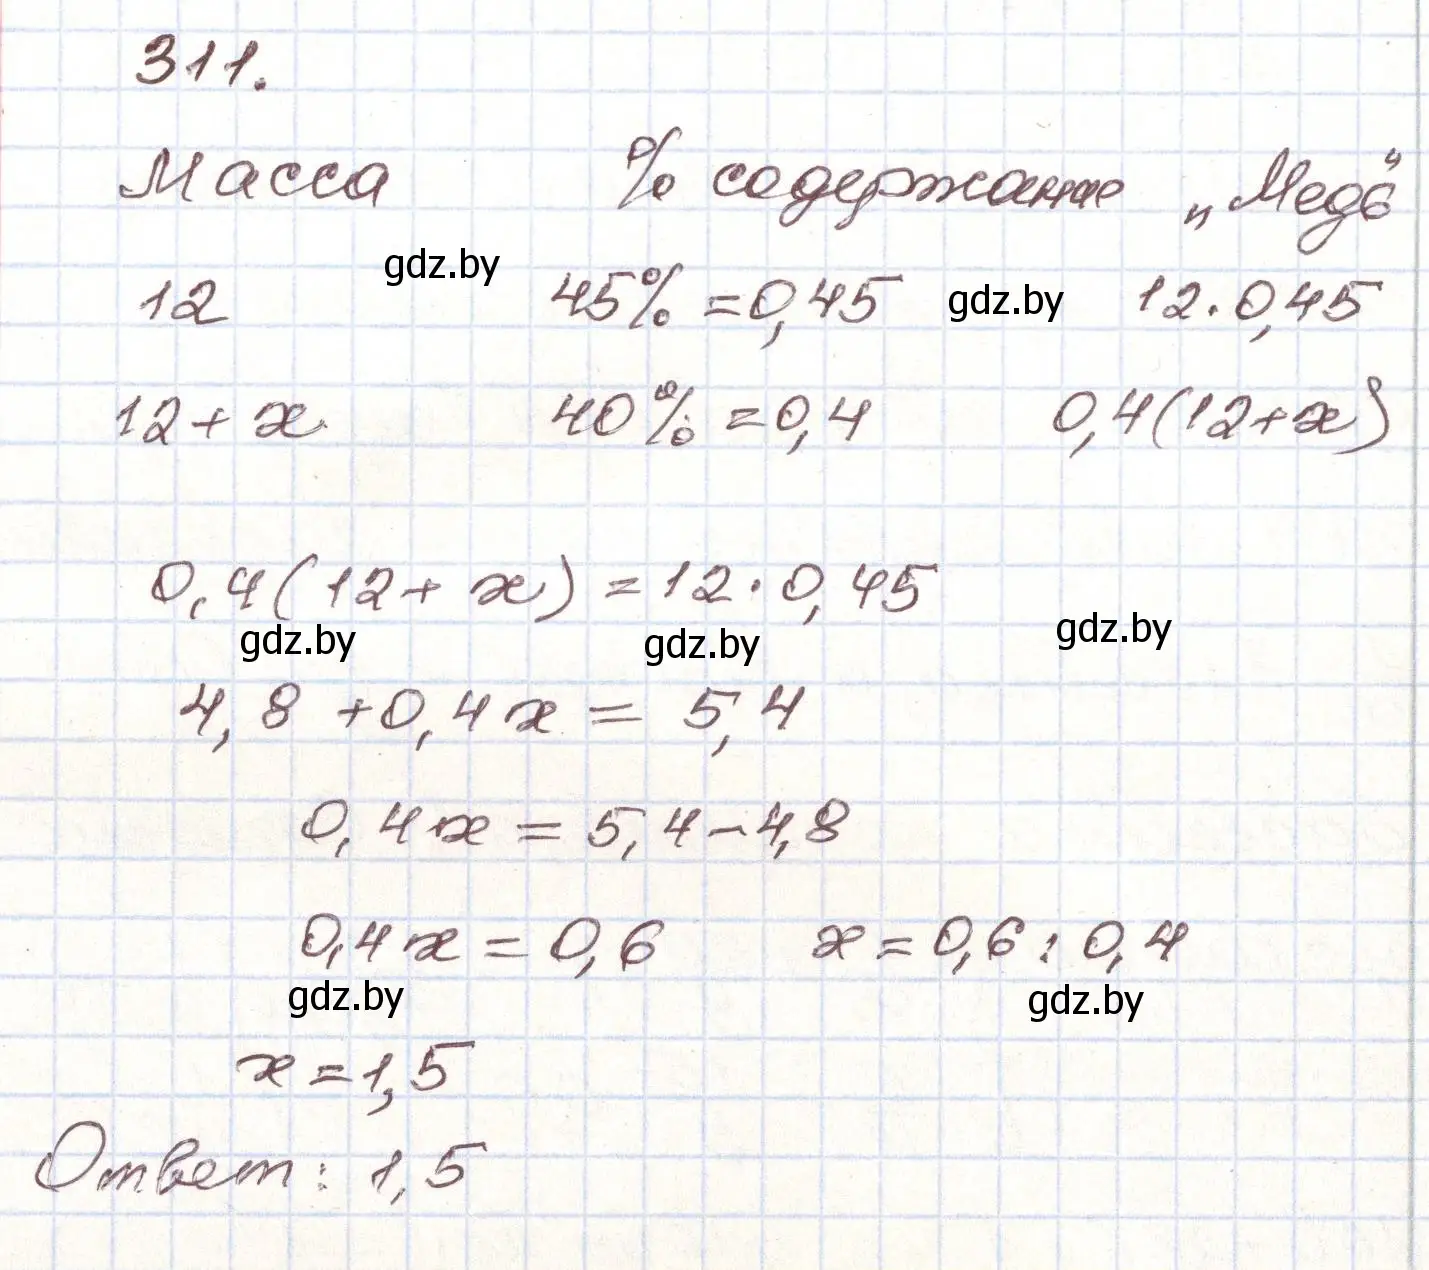 311.
Масса % содержание „Медь“
gdz.by
12 45% = 0,45 gdz.by 12 · 0,45
12 + x 40% = 0,4 0,4(12+x)
0,4(12 + x) = 12 · 0,45
gdz.by gdz.by gdz.by
4,8 + 0,4x = 5,4
0,4x = 5,4 - 4,8
0,4x = 0,6 x = 0,6 : 0,4
gdz.by gdz.by
x = 1,5
Ответ: 1,5